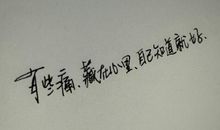 有些痛、藏在心里、自己知道就好.